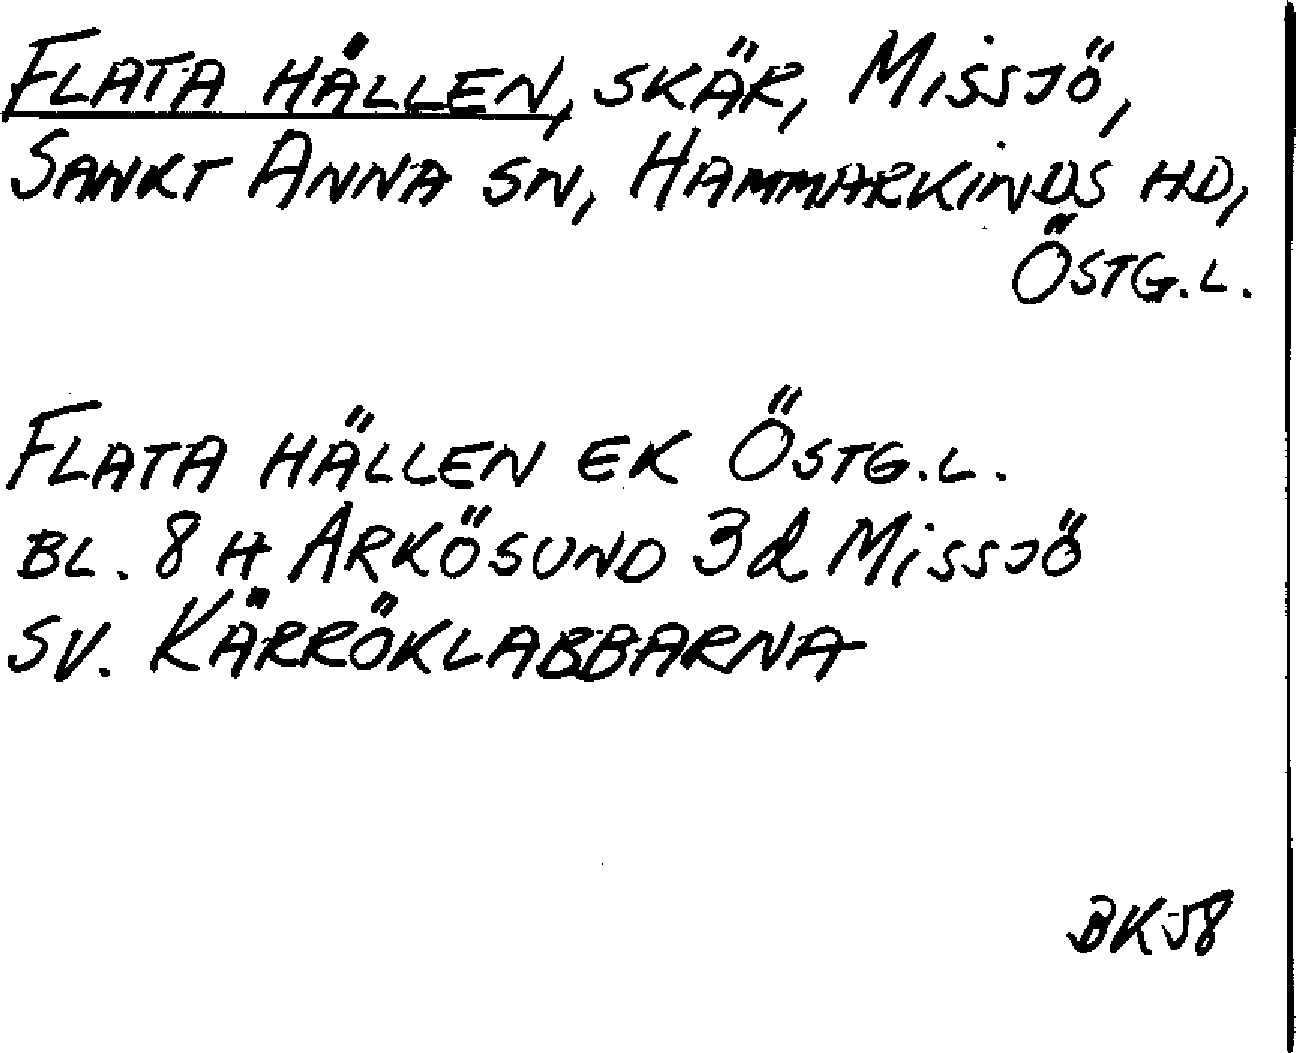 FLATA HÄLLEN, SKÄR, MISSJÖ,
SANKT ANNA SN, HAMMARKINDS HD,
ÖSTG.L.
FLATA HÄLLEN EK ÖSTG.L.
BL. 8 H ARKÖSUND 3d MISSJÖ
SV. KÄRRÖKLABBARNA
BK58